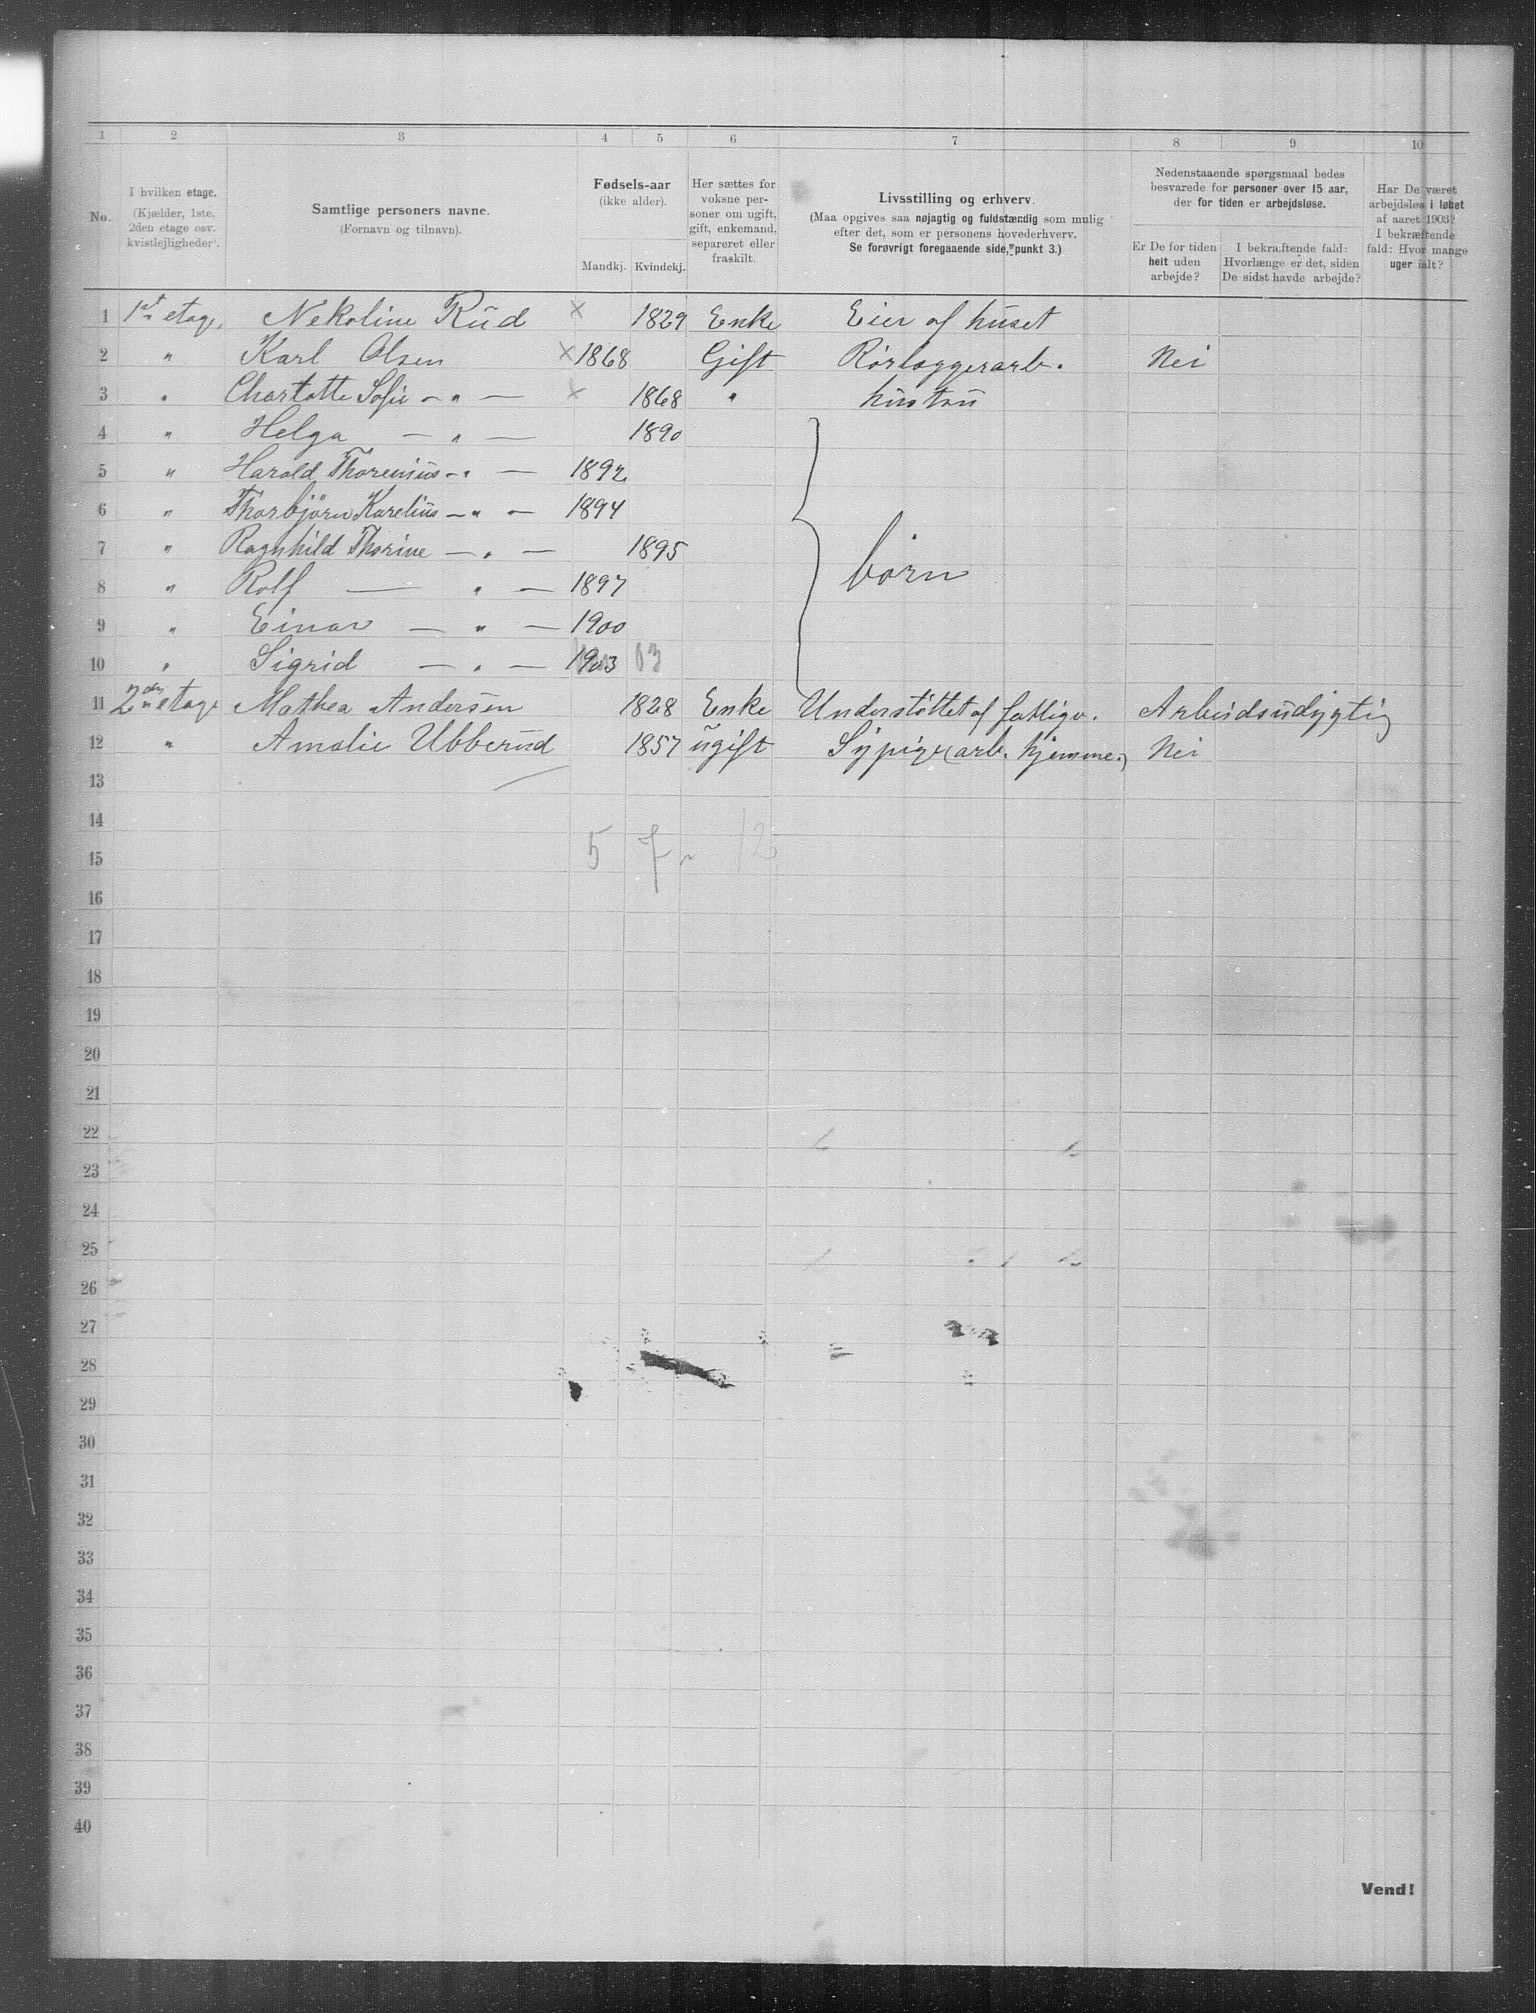 1 2 3 4 5 6 7 8 9 10
No. I hvilken etage. (Kjælder, 1ste, 2den etage osv. kvistlejligheder). Samtlige personers navne. (Fornavn og tilnavn). Fødsels-aar (ikke alder). Mandkj. Kvindekj. Her sættes for voksne personer om ugift, gift, enkemand, separeret eller fraskilt. Livsstilling og erhverv. (Maa opgives saa nøjagtig og fuldstændig som mulig efter det, som er personens hovederhverv. Se forøvrigt foregaaende side, punkt 3.) Nedenstaaende spørgsmaal bedes besvarede for personer over 15 aar, der for tiden er arbejdsløse. Er De for tiden helt uden arbejde? I bekræftende fald: Hvorlænge er det, siden De sidst havde arbejde? Har De været arbejdsløs i løbet af aaret 1903? I bekræftende fald: Hvor mange uger ialt?
1 1st etage. Nekoline Rud × 1829 Enke Eier af huset
2 " Karl Olsen × 1868 Gift Rørlæggerarb. Nei
3 " Charlotte Sofie — " — × 1868 " hustru
4 " Helga — " — 1890
5 " Harald Thorenius — " — 1892
6 " Thorbjörn Karelius — " — 1894
7 " Ragnhild Thorine — " — 1895
børn
8 " Rolf — " — 1897
9 " Einar — " — 1900
10 " Sigrid — " — 1903 03
11 2den etage Mathea Andersen 1828 Enke Understøttet af fattigv. Arbeidsudygtig
12 " Amalie Ubberud 1857 ugift Sypige (arb. hjemme.) Nei
13
14
5 7 12
15
16
17
18
19
20
21
22
23
24
25
26
27
28
29
30
31
32
33
34
35
36
37
38
39
40
Vend!